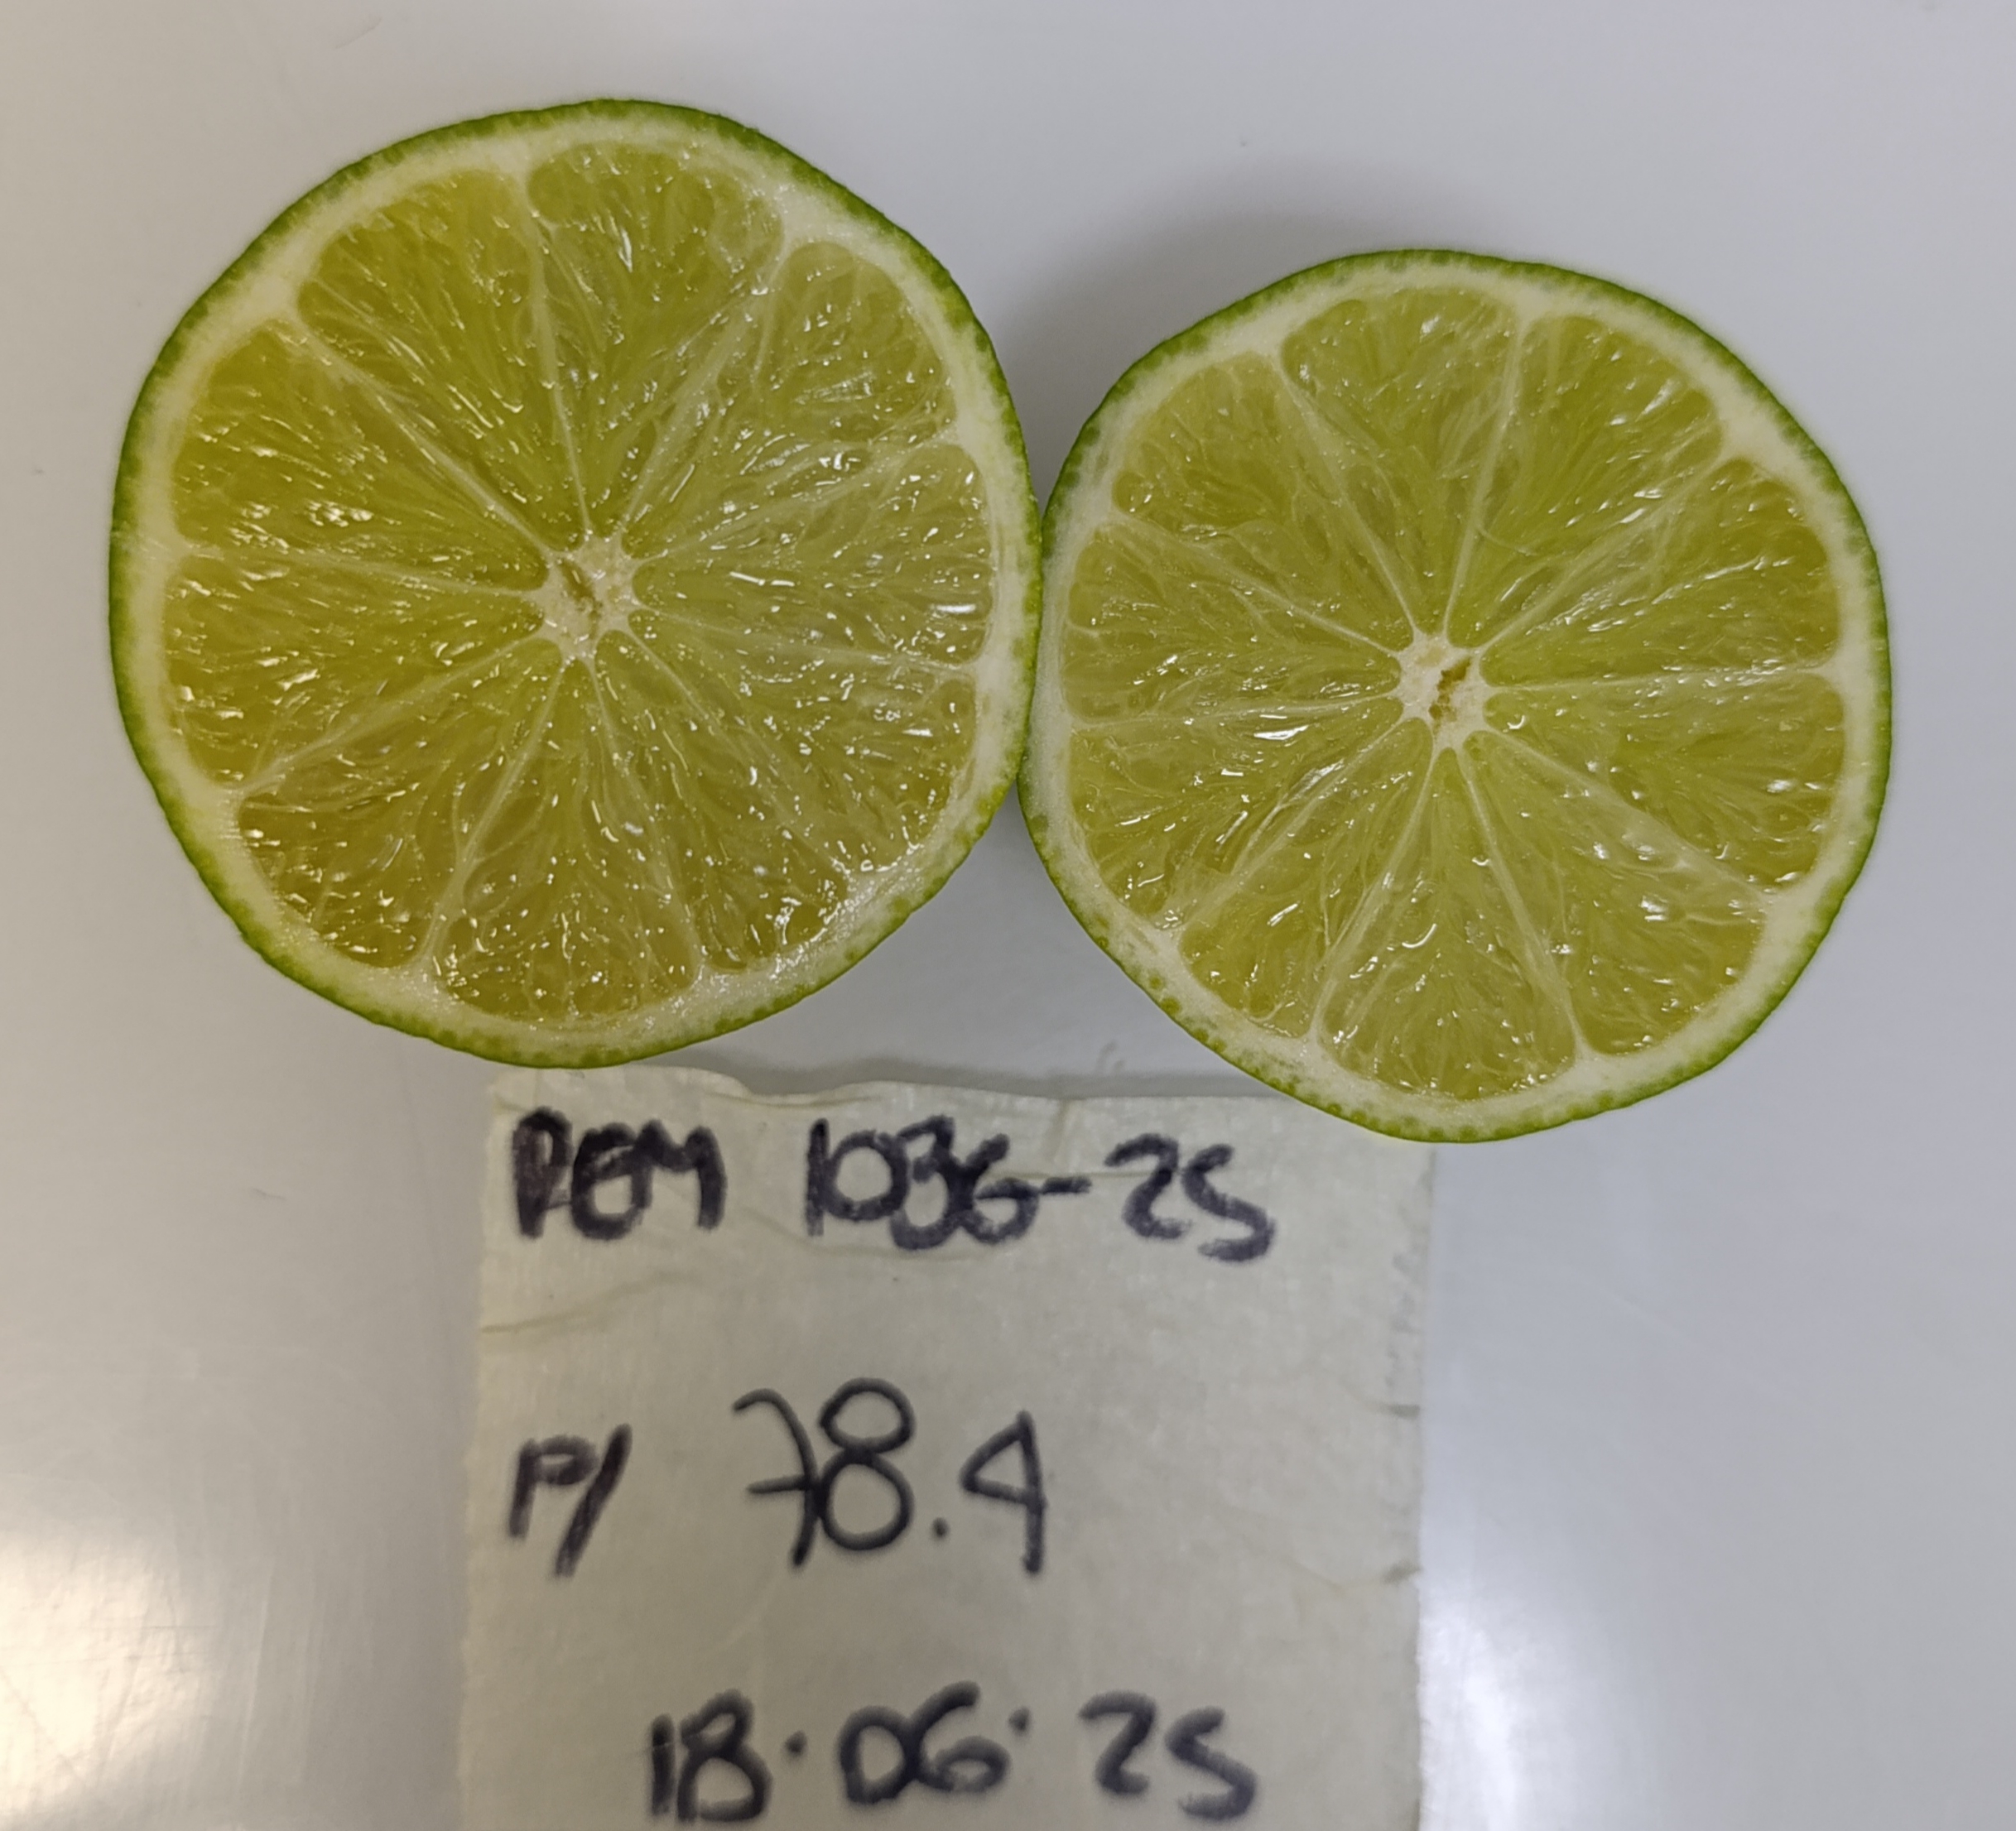 REM 1036-25
P/ 78.4
18·06·25